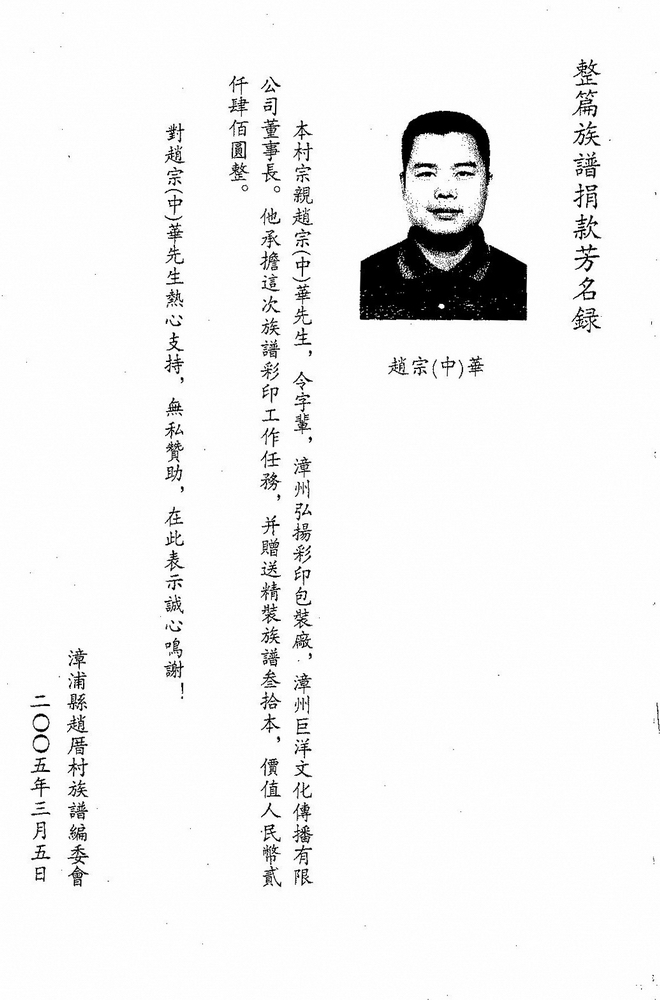 整篇族譜捐款芳名録
趙宗(中)華
本村宗親趙宗(中)華先生，令字輩，漳州弘揚彩印包裝廠，漳州巨洋文化傳播有限
公司董事長。他承擔這次族譜彩印工作任務，并贈送精裝族譜叁拾本，價值人民幣貳
仟肆佰圓整。
對趙宗(中)華先生熱心支持，無私贊助，在此表示誠心鳴謝！
漳浦縣趙厝村族譜編委會
二〇〇五年三月五日